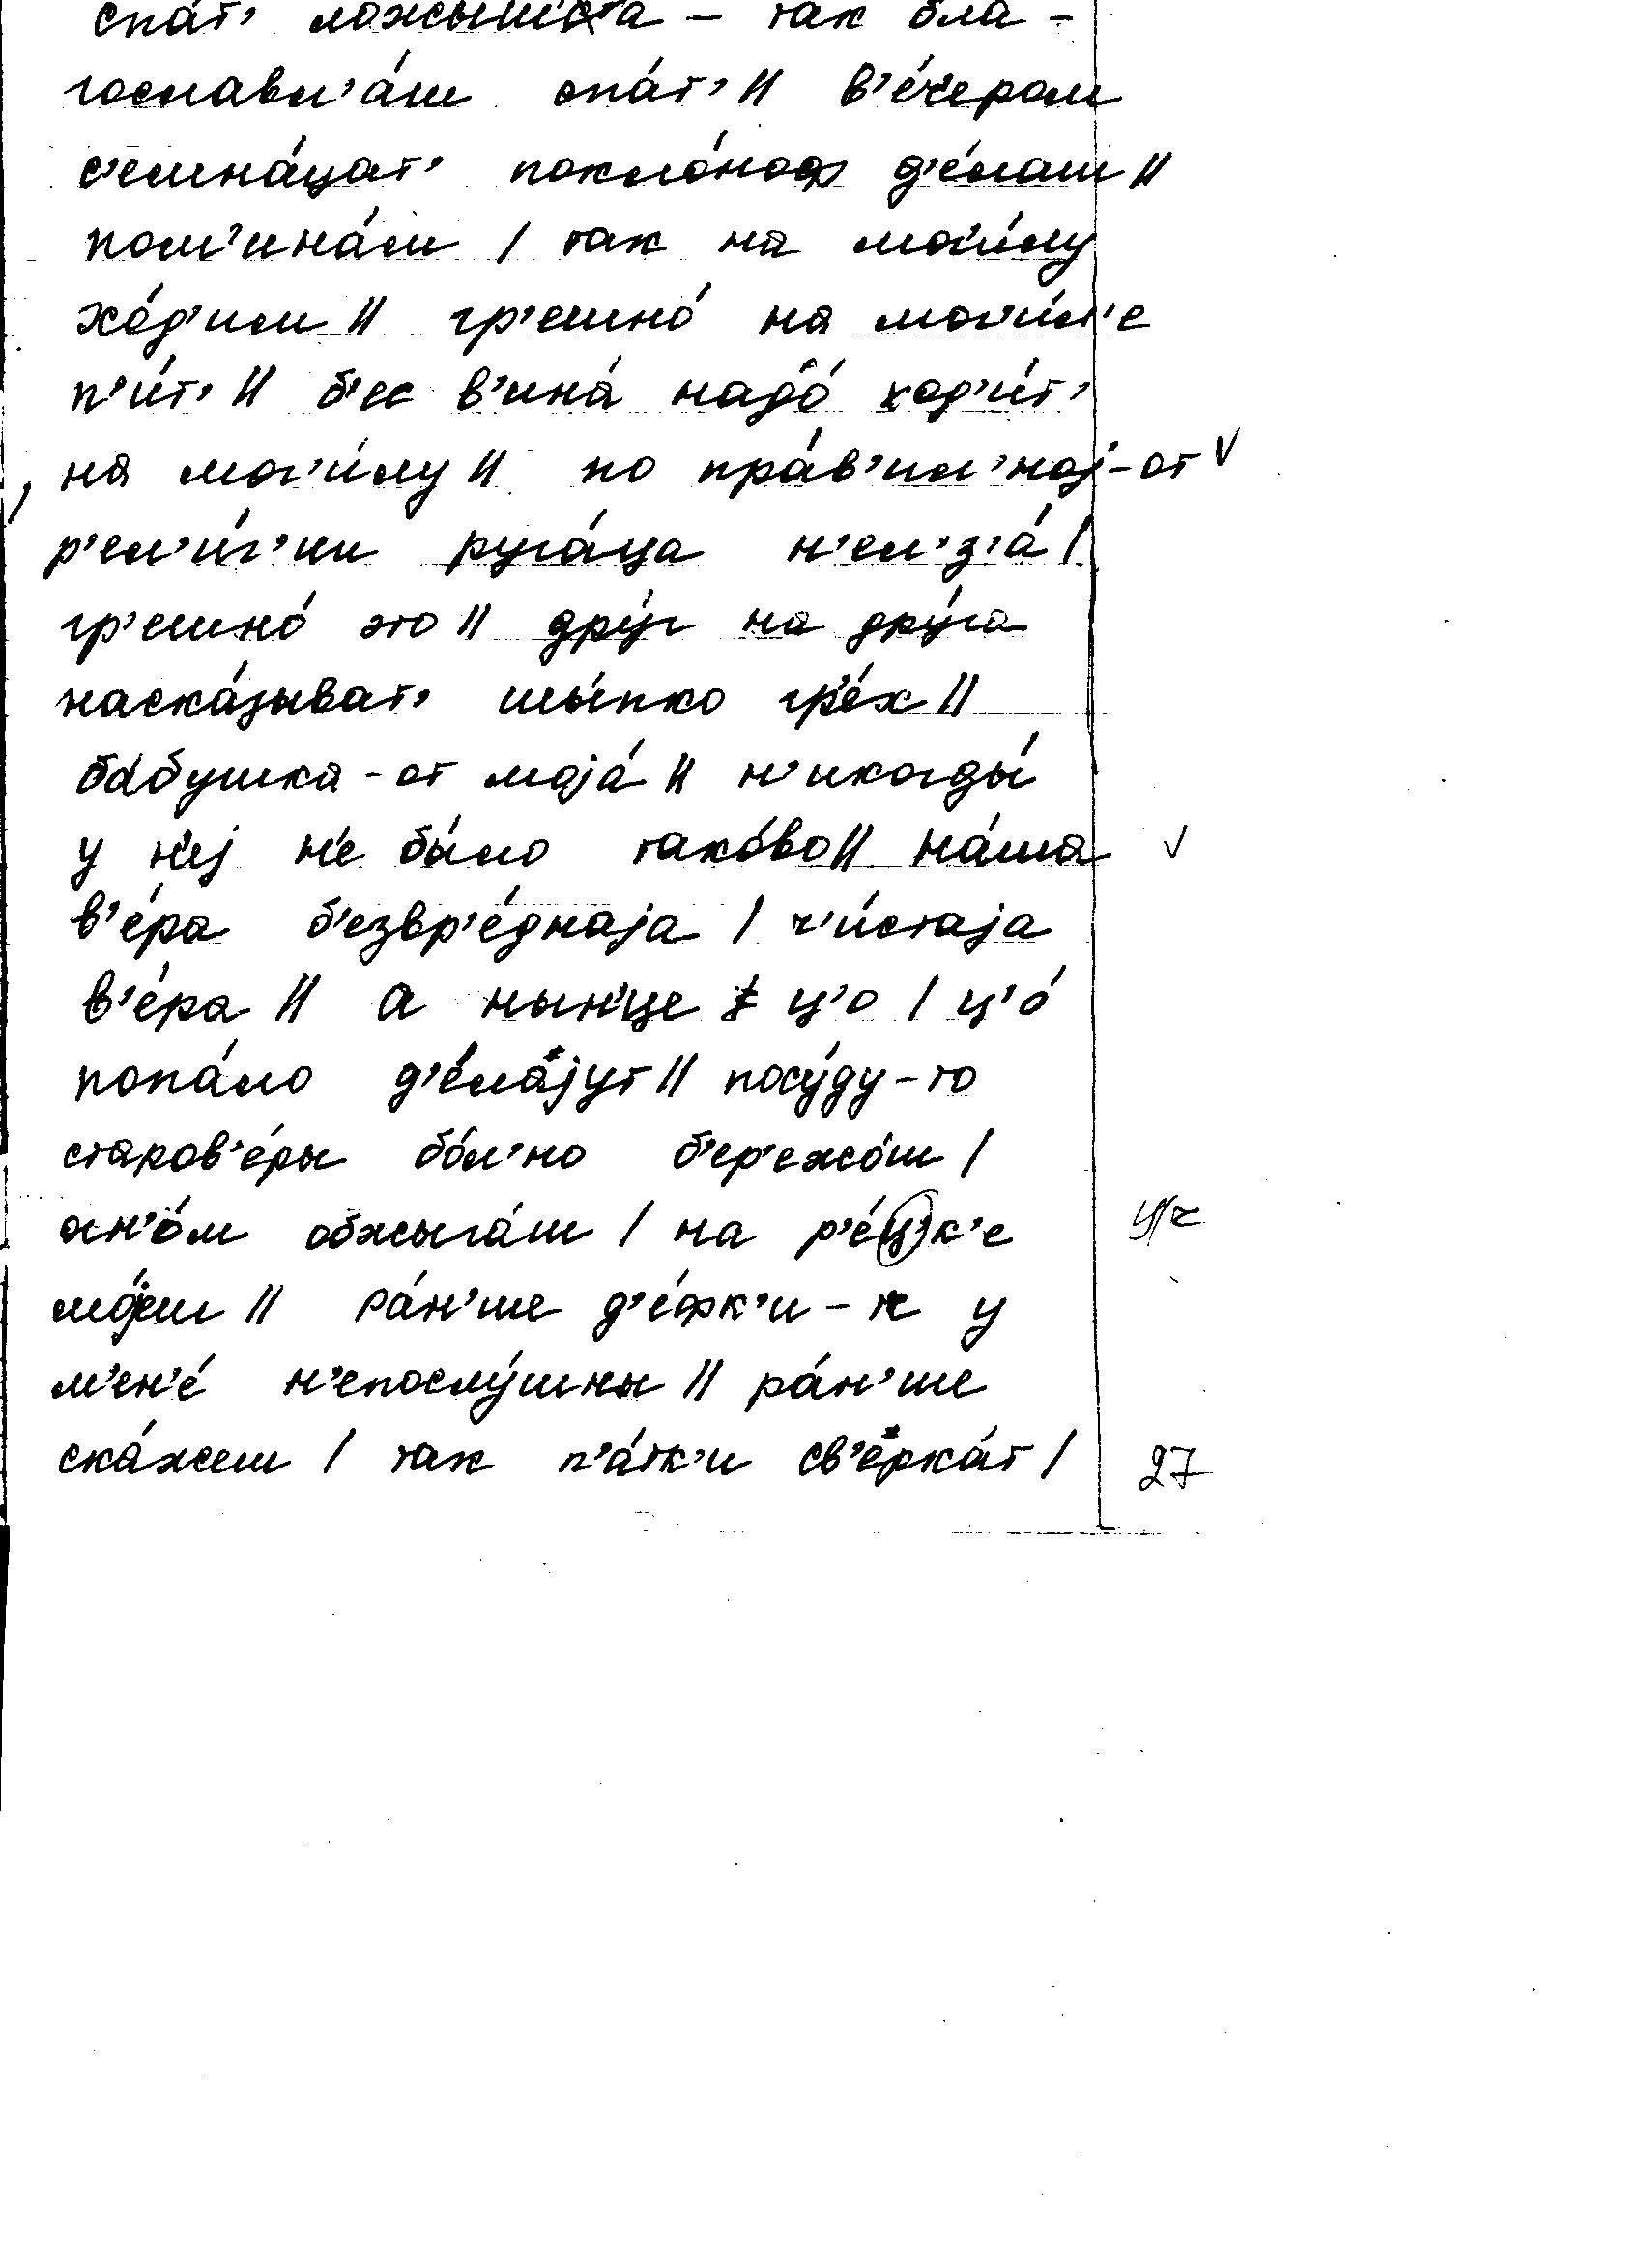 спа́т' ложы́шс'а – так бла-
гославл'а́ш спа́т' // в'е́чером
с'емна́цат' покло́ноф д'е́лаш //
пом'ина́м / так на мог'и́лу
хо́д'им // гр'ешно́ на мог'и́л'е
п'и́т' // б'ес в'ина́ на́до́ ход'и́т'
на мог'и́лу // по пра́в'ил'ној-от ∨
р'ел'и́г'ии руга́ца н'ел'з'а́ /
гр'ешно́ это // дру́г на дру́га
наска́зыват' шы́пко гр'е́х //
ба́бушка-от моја́ // н'икогды́
у н'еј н'е́ бы́ло тако́во // на́ша ∨
в'е́ра б'езвр'е́днаја / ч'и́стаја
в'е́ра // а нын'це ц'о / ц'о́
попа́ло д'е́лајут // посу́ду-то
старов'е́ры бо́л'но б'ер'ежо́м /
огн'о́м обжыга́ш / на р'е́ц'к'е ц'/ч
мо́јеш // ра́н'ше д'е́фк'и-т'е у
м'ен'е́ н'епослу́шны // ра́н'ше
ска́жеш / так п'а́тк'и св'ерка́т / 27